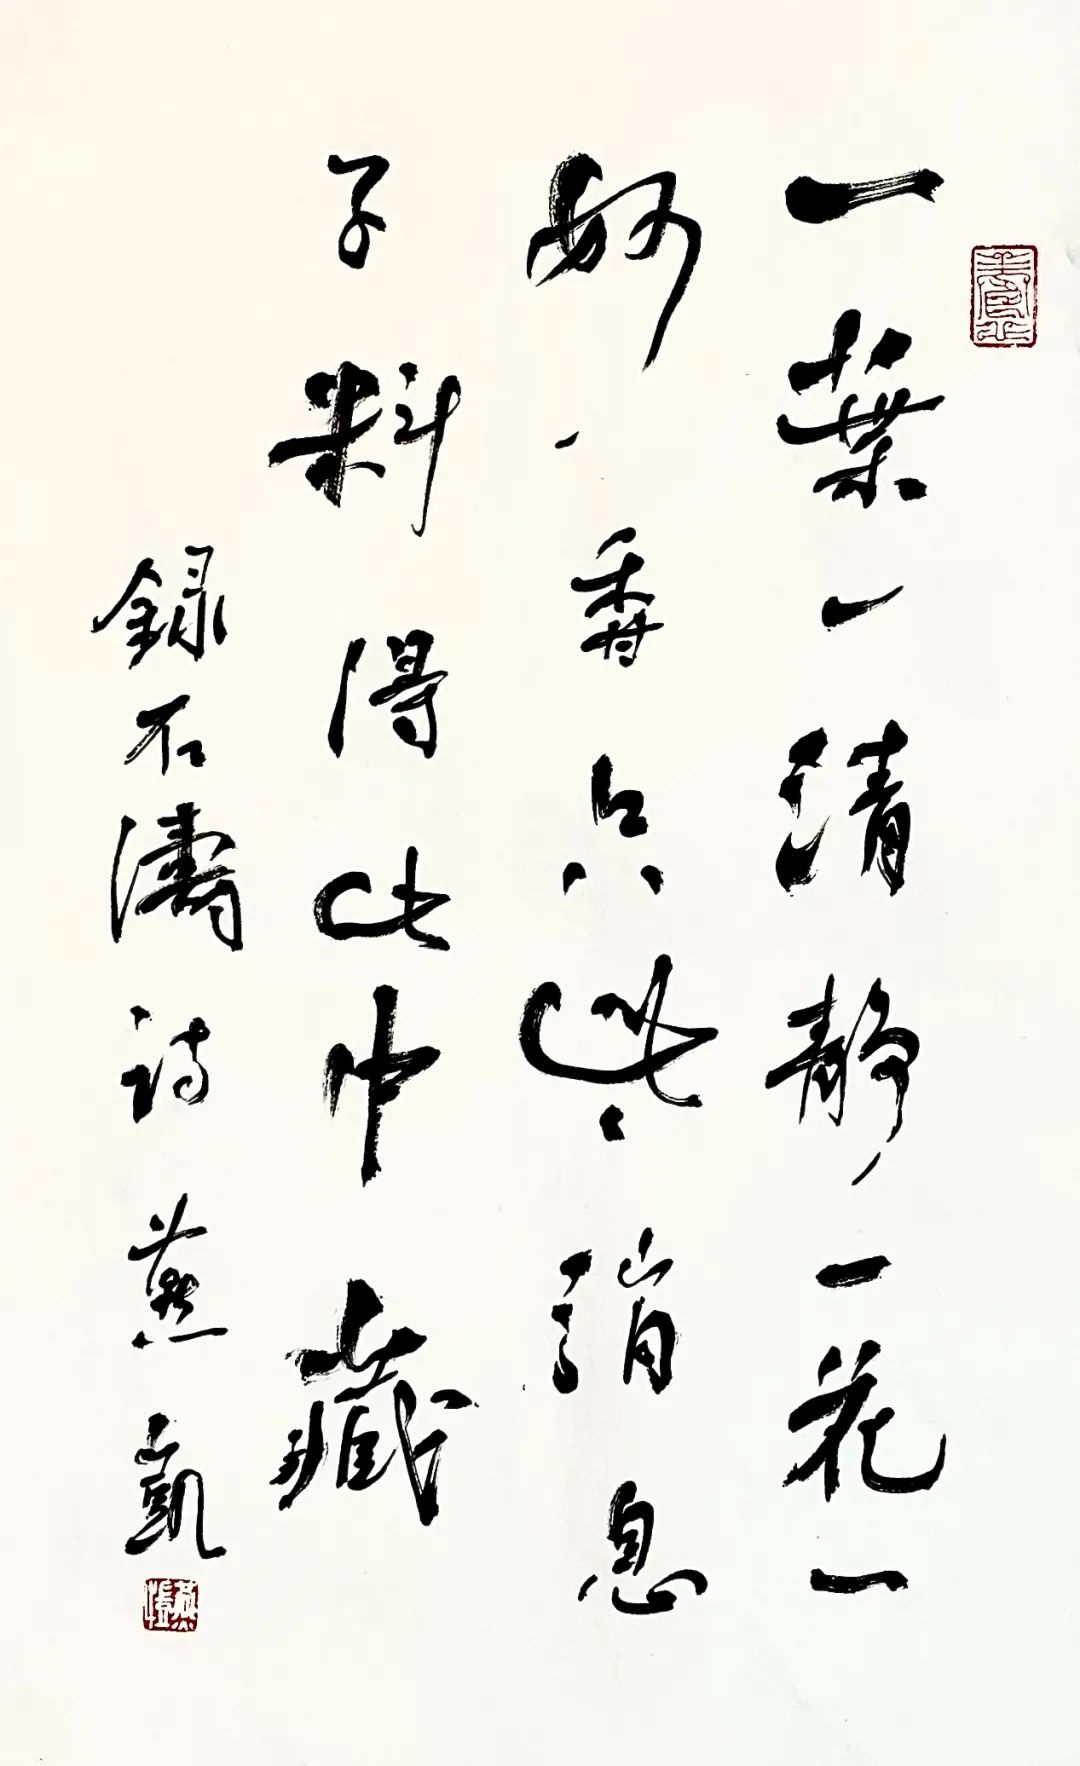 一葉一清靜一花一
妙香只些消息
子料得此中藏
錄石濤詩燕凱